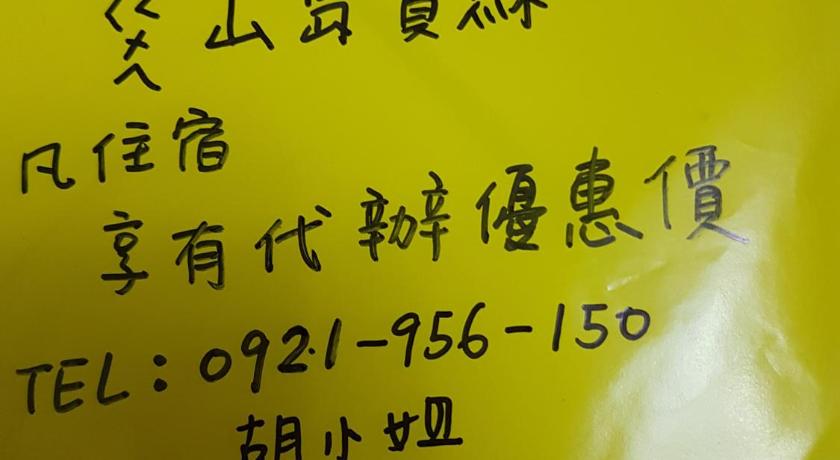 山
凡住宿
享有代辦優惠價
TEL：0921-956-150
胡小姐